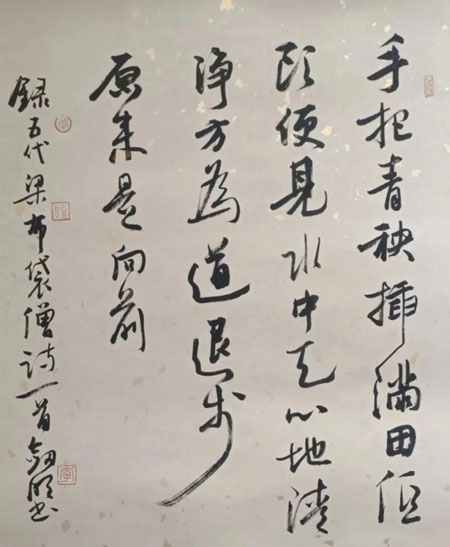 手把青秧插滿田低
頭便見水中天心地清
净方為道退步
原来是向前
録五代梁布袋僧詩一首書